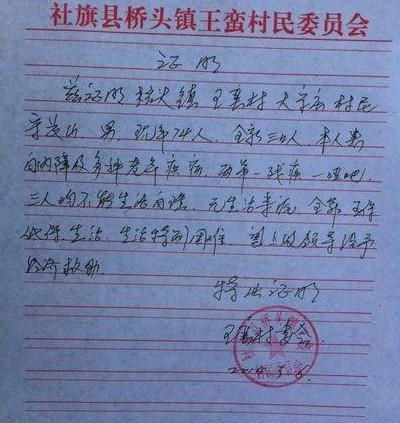 社旗县桥头镇王蛮村民委员会
证明
兹证明 桥头镇 王蛮村 大字云 村民
男 现年74人 全家三口人 本人患
白内障及多种老年疾病 两弟一残疾一哑吧
三人均不能生活自理 无生活来源 全靠
低保 生活 生活特别困难 望上级领导给予
经济救助
特此证明
王蛮村委会